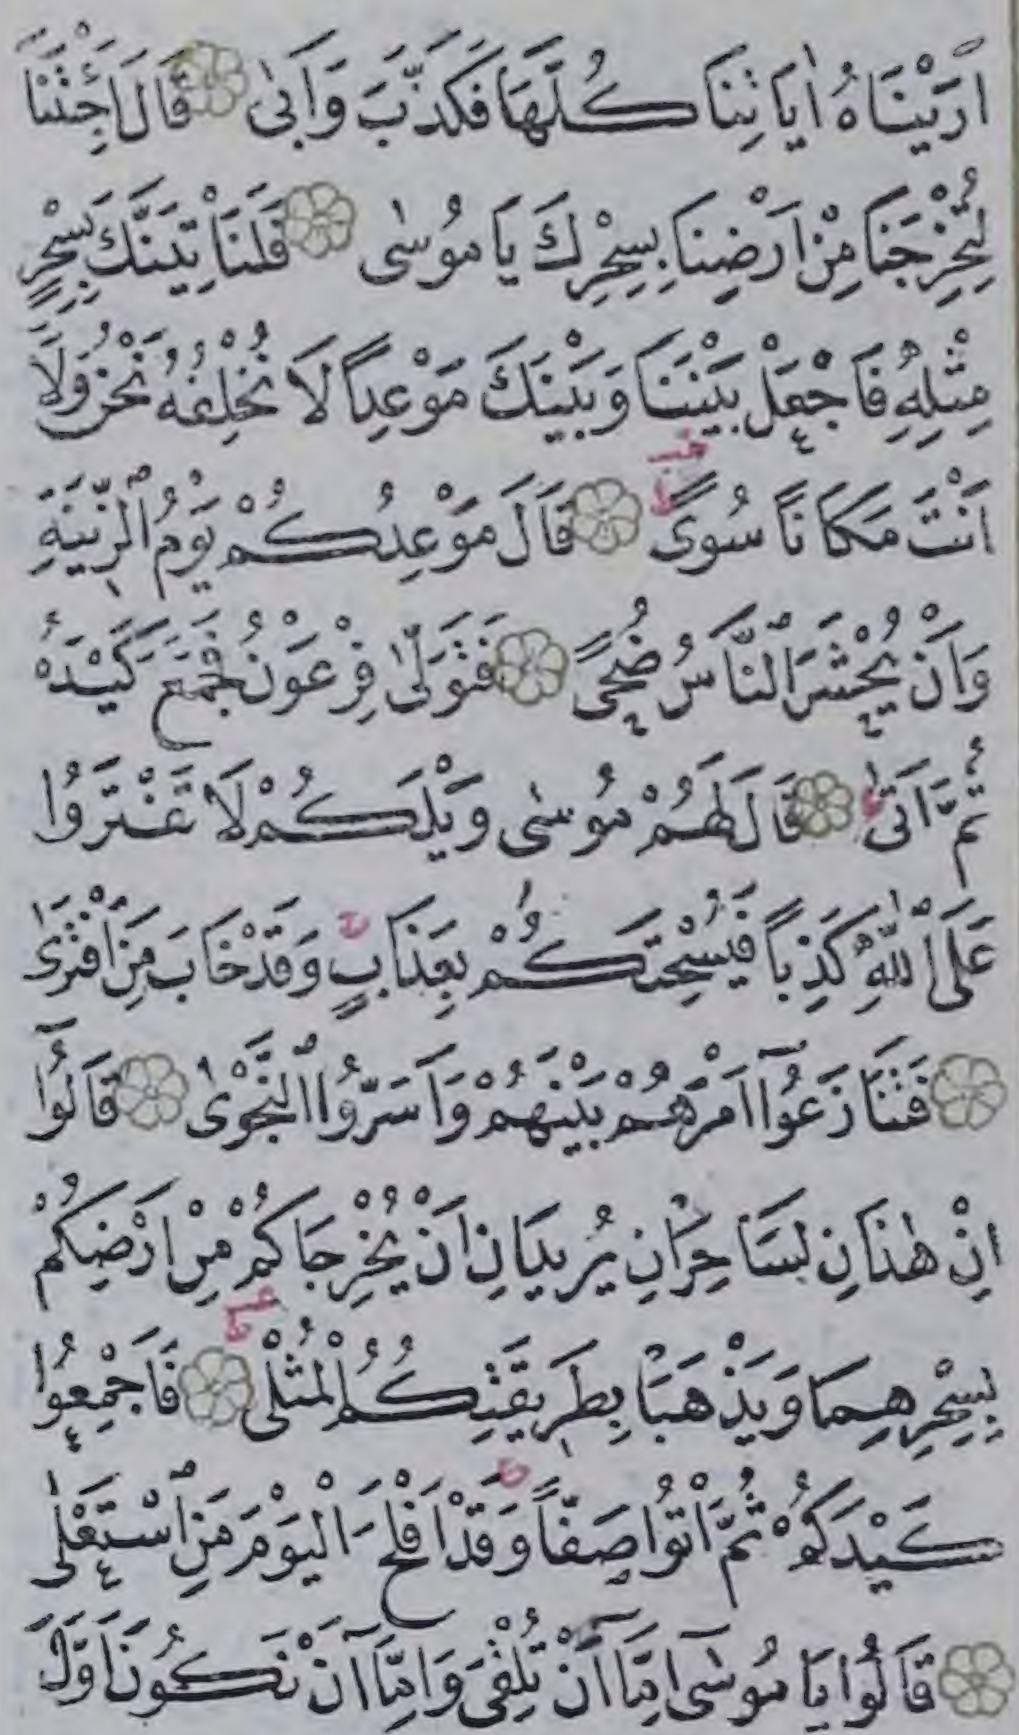 اَرَيْنَاهُ اٰيَاتِنَا كُلَّهَا فَكَذَّبَ وَاَبٰى ۞ قَالَ اَجِئْتَنَا
لِتُخْرِجَنَا مِنْ اَرْضِنَا بِسِحْرِكَ يَا مُوسٰى ۞ فَلَنَأْتِيَنَّكَ بِسِحْرٍ
مِثْلِهٖ فَاجْعَلْ بَيْنَنَا وَبَيْنَكَ مَوْعِدًا لَا نُخْلِفُهُ نَحْنُ وَلَٓا
اَنْتَ مَكَانًا سُوًى ۞ قَالَ مَوْعِدُكُمْ يَوْمُ الزّٖينَةِ
وَاَنْ يُحْشَرَ النَّاسُ ضُحًى ۞ فَتَوَلّٰى فِرْعَوْنُ فَجَمَعَ كَيْدَهُ
ثُمَّ اَتٰى ۞ قَالَ لَهُمْ مُوسٰى وَيْلَكُمْ لَا تَفْتَرُوا
عَلَى اللّٰهِ كَذِبًا فَيُسْحِتَكُمْ بِعَذَابٍ وَقَدْ خَابَ مَنِ افْتَرٰى
۞ فَتَنَازَعُٓوا اَمْرَهُمْ بَيْنَهُمْ وَاَسَرُّوا النَّجْوٰى ۞ قَالُٓوا
اِنْ هٰذَانِ لَسَاحِرَانِ يُرٖيدَانِ اَنْ يُخْرِجَاكُمْ مِنْ اَرْضِكُمْ
بِسِحْرِهِمَا وَيَذْهَبَا بِطَرٖيقَتِكُمُ الْمُثْلٰى ۞ فَاَجْمِعُوا
كَيْدَكُمْ ثُمَّ ائْتُوا صَفًّا وَقَدْ اَفْلَحَ الْيَوْمَ مَنِ اسْتَعْلٰى
۞ قَالُوا يَا مُوسٰٓى اِمَّٓا اَنْ تُلْقِيَ وَاِمَّٓا اَنْ نَكُونَ اَوَّلَ